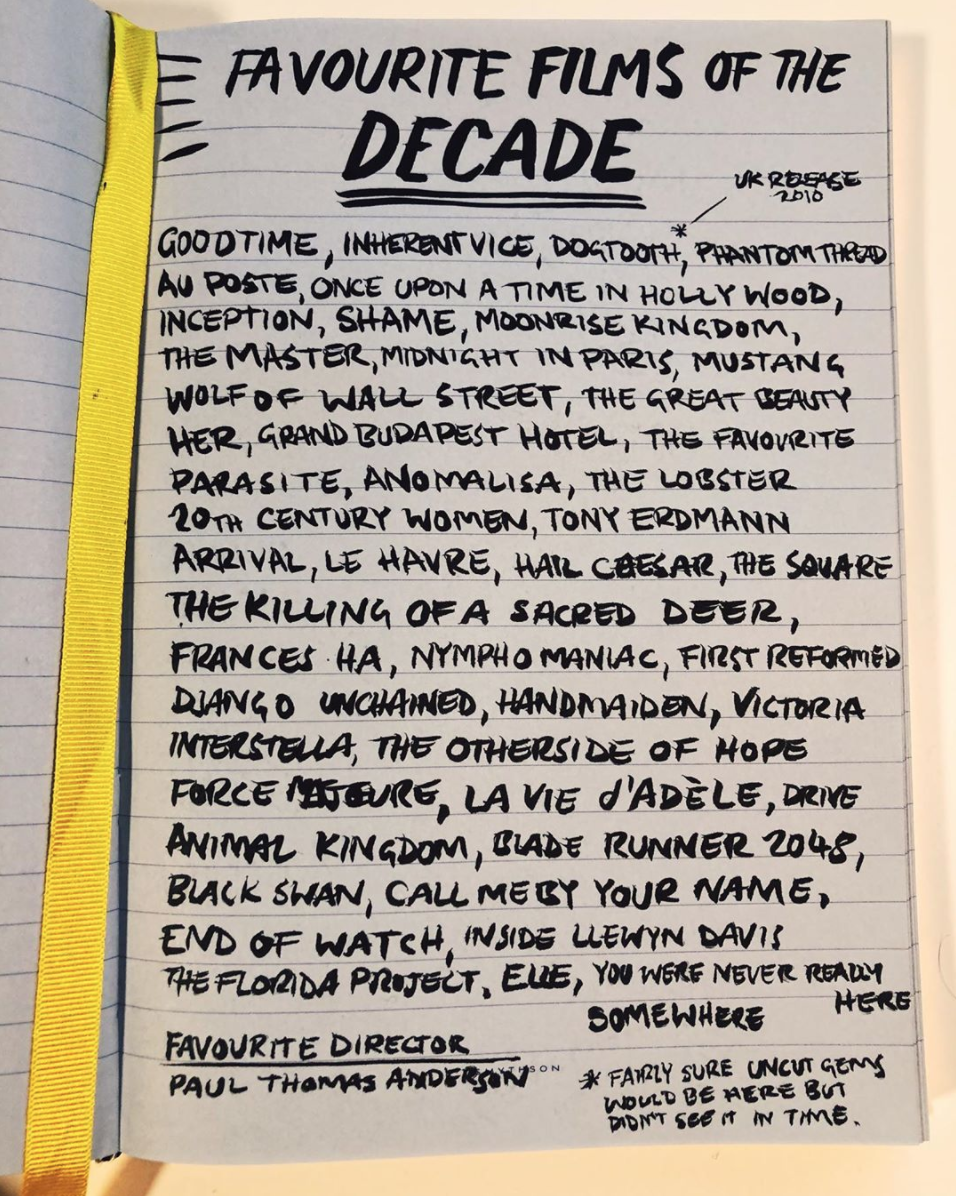 FAVOURITE FILMS OF THE
DECADE
UK RELEASE
2010
*
GOODTIME, INHERENT VICE, DOGTOOTH, PHANTOM THREAD
AU POSTE, ONCE UPON A TIME IN HOLLYWOOD,
INCEPTION, SHAME, MOONRISE KINGDOM,
THE MASTER, MIDNIGHT IN PARIS, MUSTANG
WOLF OF WALL STREET, THE GREAT BEAUTY
HER, GRAND BUDAPEST HOTEL, THE FAVOURITE
PARASITE, ANOMALISA, THE LOBSTER
20TH CENTURY WOMEN, TONY ERDMANN
ARRIVAL, LE HAVRE, HAIL CAESAR, THE SQUARE
THE KILLING OF A SACRED DEER,
FRANCES HA, NYMPHOMANIAC, FIRST REFORMED
DJANGO UNCHAINED, HANDMAIDEN, VICTORIA
INTERSTELLA, THE OTHERSIDE OF HOPE
FORCE MAJEURE, LA VIE d'ADÈLE, DRIVE
ANIMAL KINGDOM, BLADE RUNNER 2048,
BLACK SWAN, CALL ME BY YOUR NAME,
END OF WATCH, INSIDE LLEWYN DAVIS
THE FLORIDA PROJECT, ELLE, YOU WERE NEVER REALLY
HERE
SOMEWHERE
FAVOURITE DIRECTOR
PAUL THOMAS ANDERSON
* FAIRLY SURE UNCUT GEMS
WOULD BE HERE BUT
DIDN'T SEE IT IN TIME.